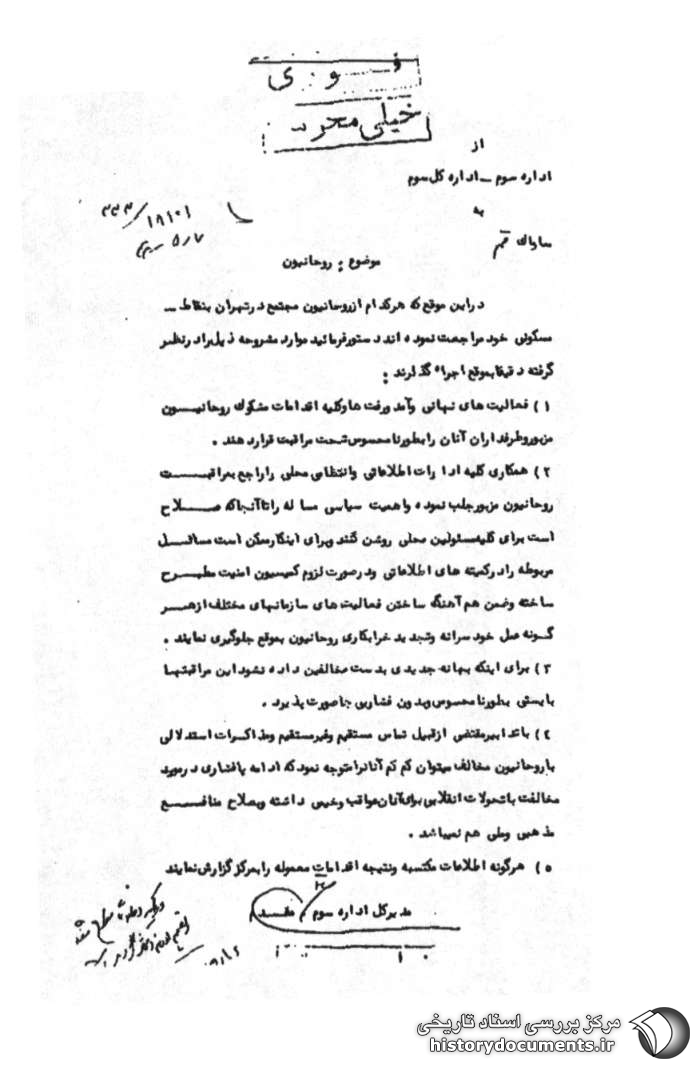 فوری
خیلی محرمانه
از
اداره سوم – اداره کل سوم
به
ساواک قم
موضوع : روحانیون
در این موقع که هر کدام از روحانیون مجتمع در تهران بنقاط –
سکونی خود مراجعت نموده اند دستور فرمائید موارد مشروحه ذیل را در نظر
گرفته دقیقا بموقع اجراء گذارند :
۱) فعالیت های نهانی و آمد و رفت ها و کلیه اقدامات مشکوک روحانیون
مزبور و طرفداران آنان را بطور نامحسوس تحت مراقبت قرار دهند .
۲) همکاری کلیه ادارات اطلاعاتی و انتظامی محلی را راجع بمراقبت
روحانیون مزبور جلب نموده و اهمیت سیاسی مساله را تا آنجا که صلاح
است برای کلیه مسئولین محلی روشن کنند و برای اینکار ممکن است مسائل
مربوطه را در کمیته های اطلاعاتی و در صورت لزوم کمیسیون امنیت مطرح
ساخته و ضمن هم آهنگ ساختن فعالیت های سازمانهای مختلف از هر
گونه عمل خود سرانه و تجدید خرابکاری روحانیون بموقع جلوگیری نمایند .
۳) برای اینکه بهانه جدیدی بدست مخالفین داده نشود این مراقبتها
بایستی بطور نامحسوس و بدون فشار بی جا صورت پذیرد .
۴) با تدابیر مقتضی از قبیل تماس مستقیم و غیر مستقیم و مذاکرات استدلالی
با روحانیون مخالف میتوان کم کم آنانرا متوجه نمود که ادامه پافشاری در مورد
مخالفت با تحولات انقلابی برای آنان عواقب وخیمی داشته و بصلاح منافع
مذهبی و ملی هم نمیباشد .
۵) هرگونه اطلاعات مکتسبه و نتیجه اقدامات معموله را بمرکز گزارش نمایند
مدیر کل اداره سوم
مرکز بررسی اسناد تاریخی
historydocuments.ir